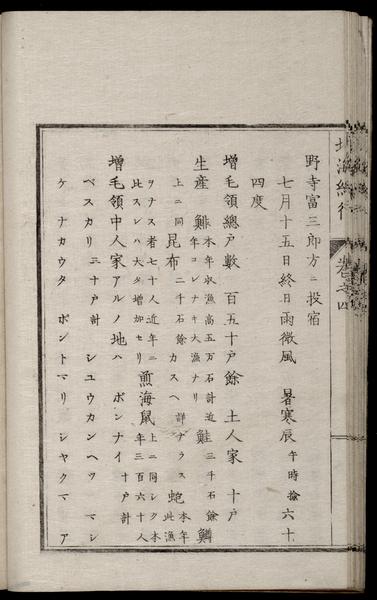 北海紀行
巻之四
野寺富三郎方ニ投宿
七月十五日終日雨微風 暑寒辰午時拾六十
四度
増毛領總戸數 百五十戸餘 土人家 十戸
生産 鯡本年收漁高五万石計近年コレナキ大漁ナリ 鮭三千石餘 鱒
上ニ同 昆布二千石餘カスヘ詳ナラス 鮑本年此漁
ヲナス者七十人近年ニ此スレハ大タ増加セリ 煎海鼠上ニ同シク本年三百六十人
増毛領中人家アルノ地ハ ポンナイ十戸計
ベスカリ三十戸計 シユウカンヘツ マシ
ケ ナカウタ ポントマリ シヤクマ ア